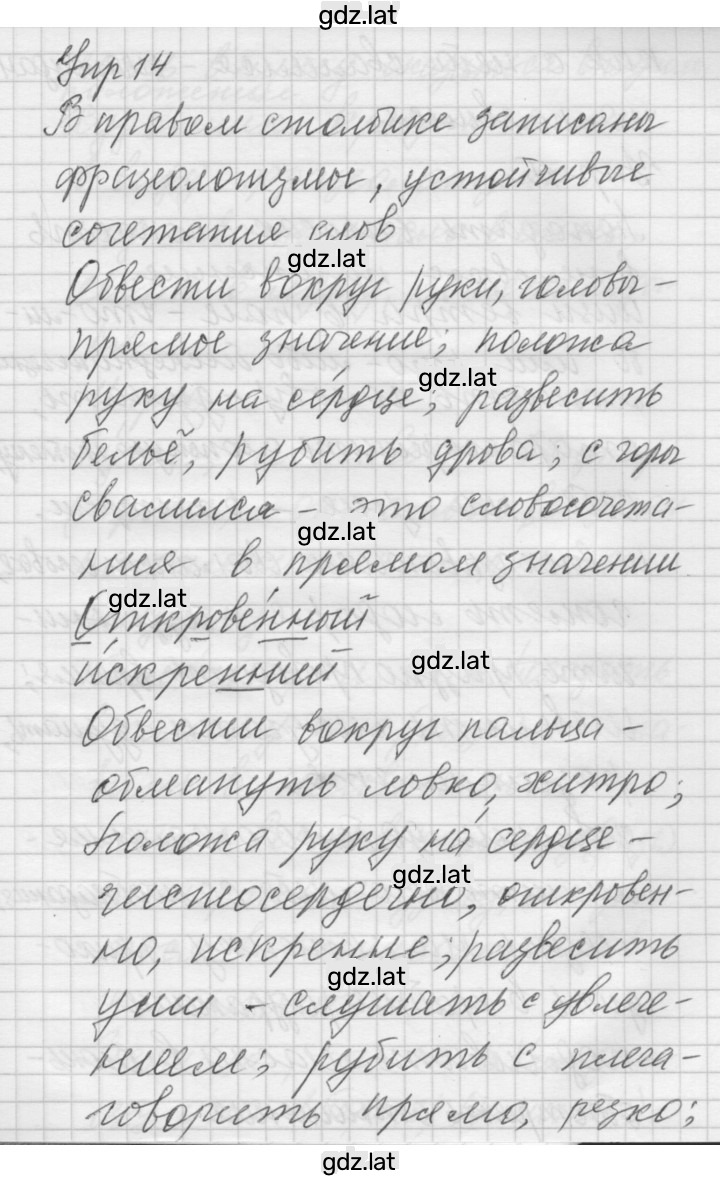 gdz.lat
Упр 14
В правом столбике записаны
фразеологизмы, устойчивые
сочетания слов
gdz.lat
Обвести вокруг руки, головы -
прямое значение; положа
gdz.lat
руку на сердце; развесить
бельё, рубить дрова; с горы
свалился - это словосочета-
gdz.lat
ния в прямом значении
gdz.lat
Откровенный
искренний
gdz.lat
Обвести вокруг пальца -
обмануть ловко, хитро;
положа руку на сердце -
gdz.lat
чистосердечно, откровен-
но, искренне; развесить
gdz.lat
уши - слушать с увлече-
нием; рубить с плеча -
говорить прямо, резко;
gdz.lat